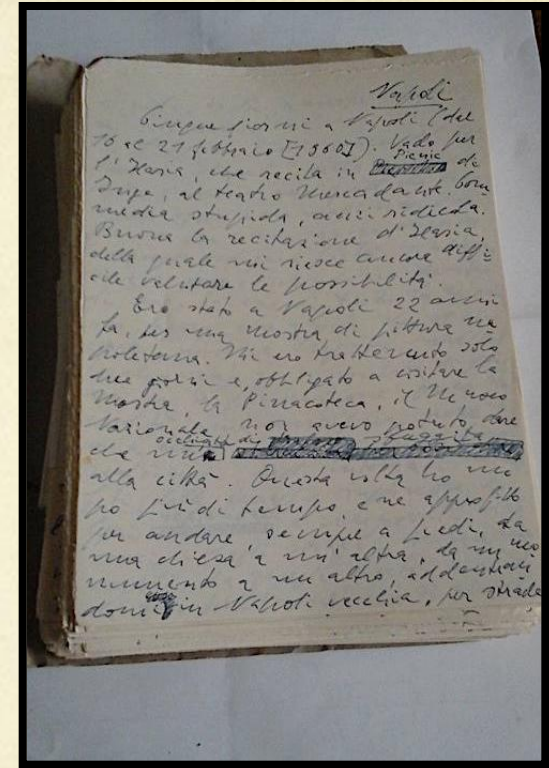 Napoli
Cinque giorni a Napoli (dal
16 al 21 febbraio [1960]). Vado per
l'Ilaria, che recita in Picnic di
Inge, al teatro Mercadante. Com
media stupida, anzi ridicola.
Buona la recitazione d'Ilaria,
della quale mi riesce ancora diffi=
cile valutare le possibilità.
Ero stato a Napoli 22 anni
fa, per una mostra di pittura na
poletana. Mi ero trattenuto solo
due giorni e, obbligato a visitare la
mostra, la Pinacoteca, il Museo
Nazionale, non avevo potuto dare
che un' occhiata di sfuggita
alla città. Questa volta ho un
po' più di tempo, e ne approfitto
per andare, sempre a piedi, da
una chiesa a un'altra, da un mo
numento a un altro, addentran
domi in Napoli vecchia, per strade